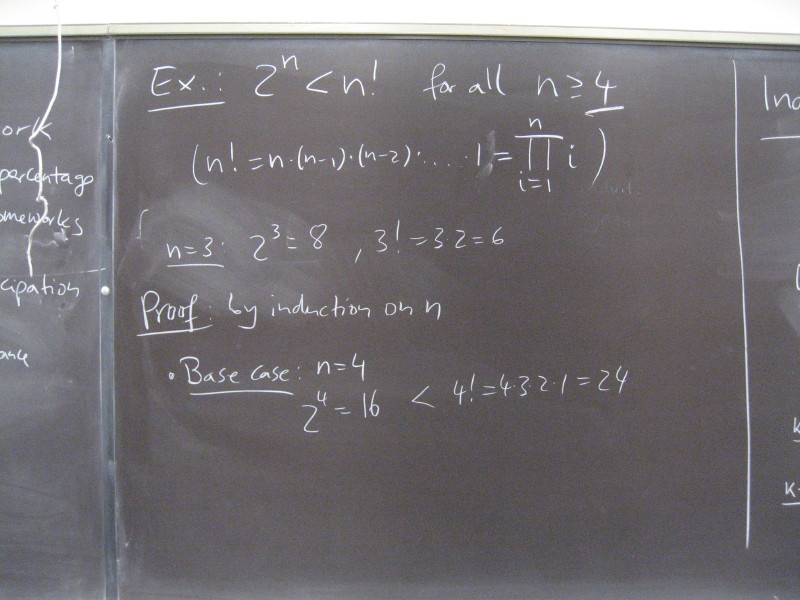 ork
percentage
omeworks
cipation
Ex.: 2^n < n! for all n ≥ 4
(n! = n·(n-1)·(n-2)·.....1 = ∏_{i=1}^{n} i)
n=3: 2^3 = 8 , 3! = 3·2 = 6
Proof: by induction on n
• Base case: n=4
2^4 = 16 < 4! = 4·3·2·1 = 24
Ind
k
k-